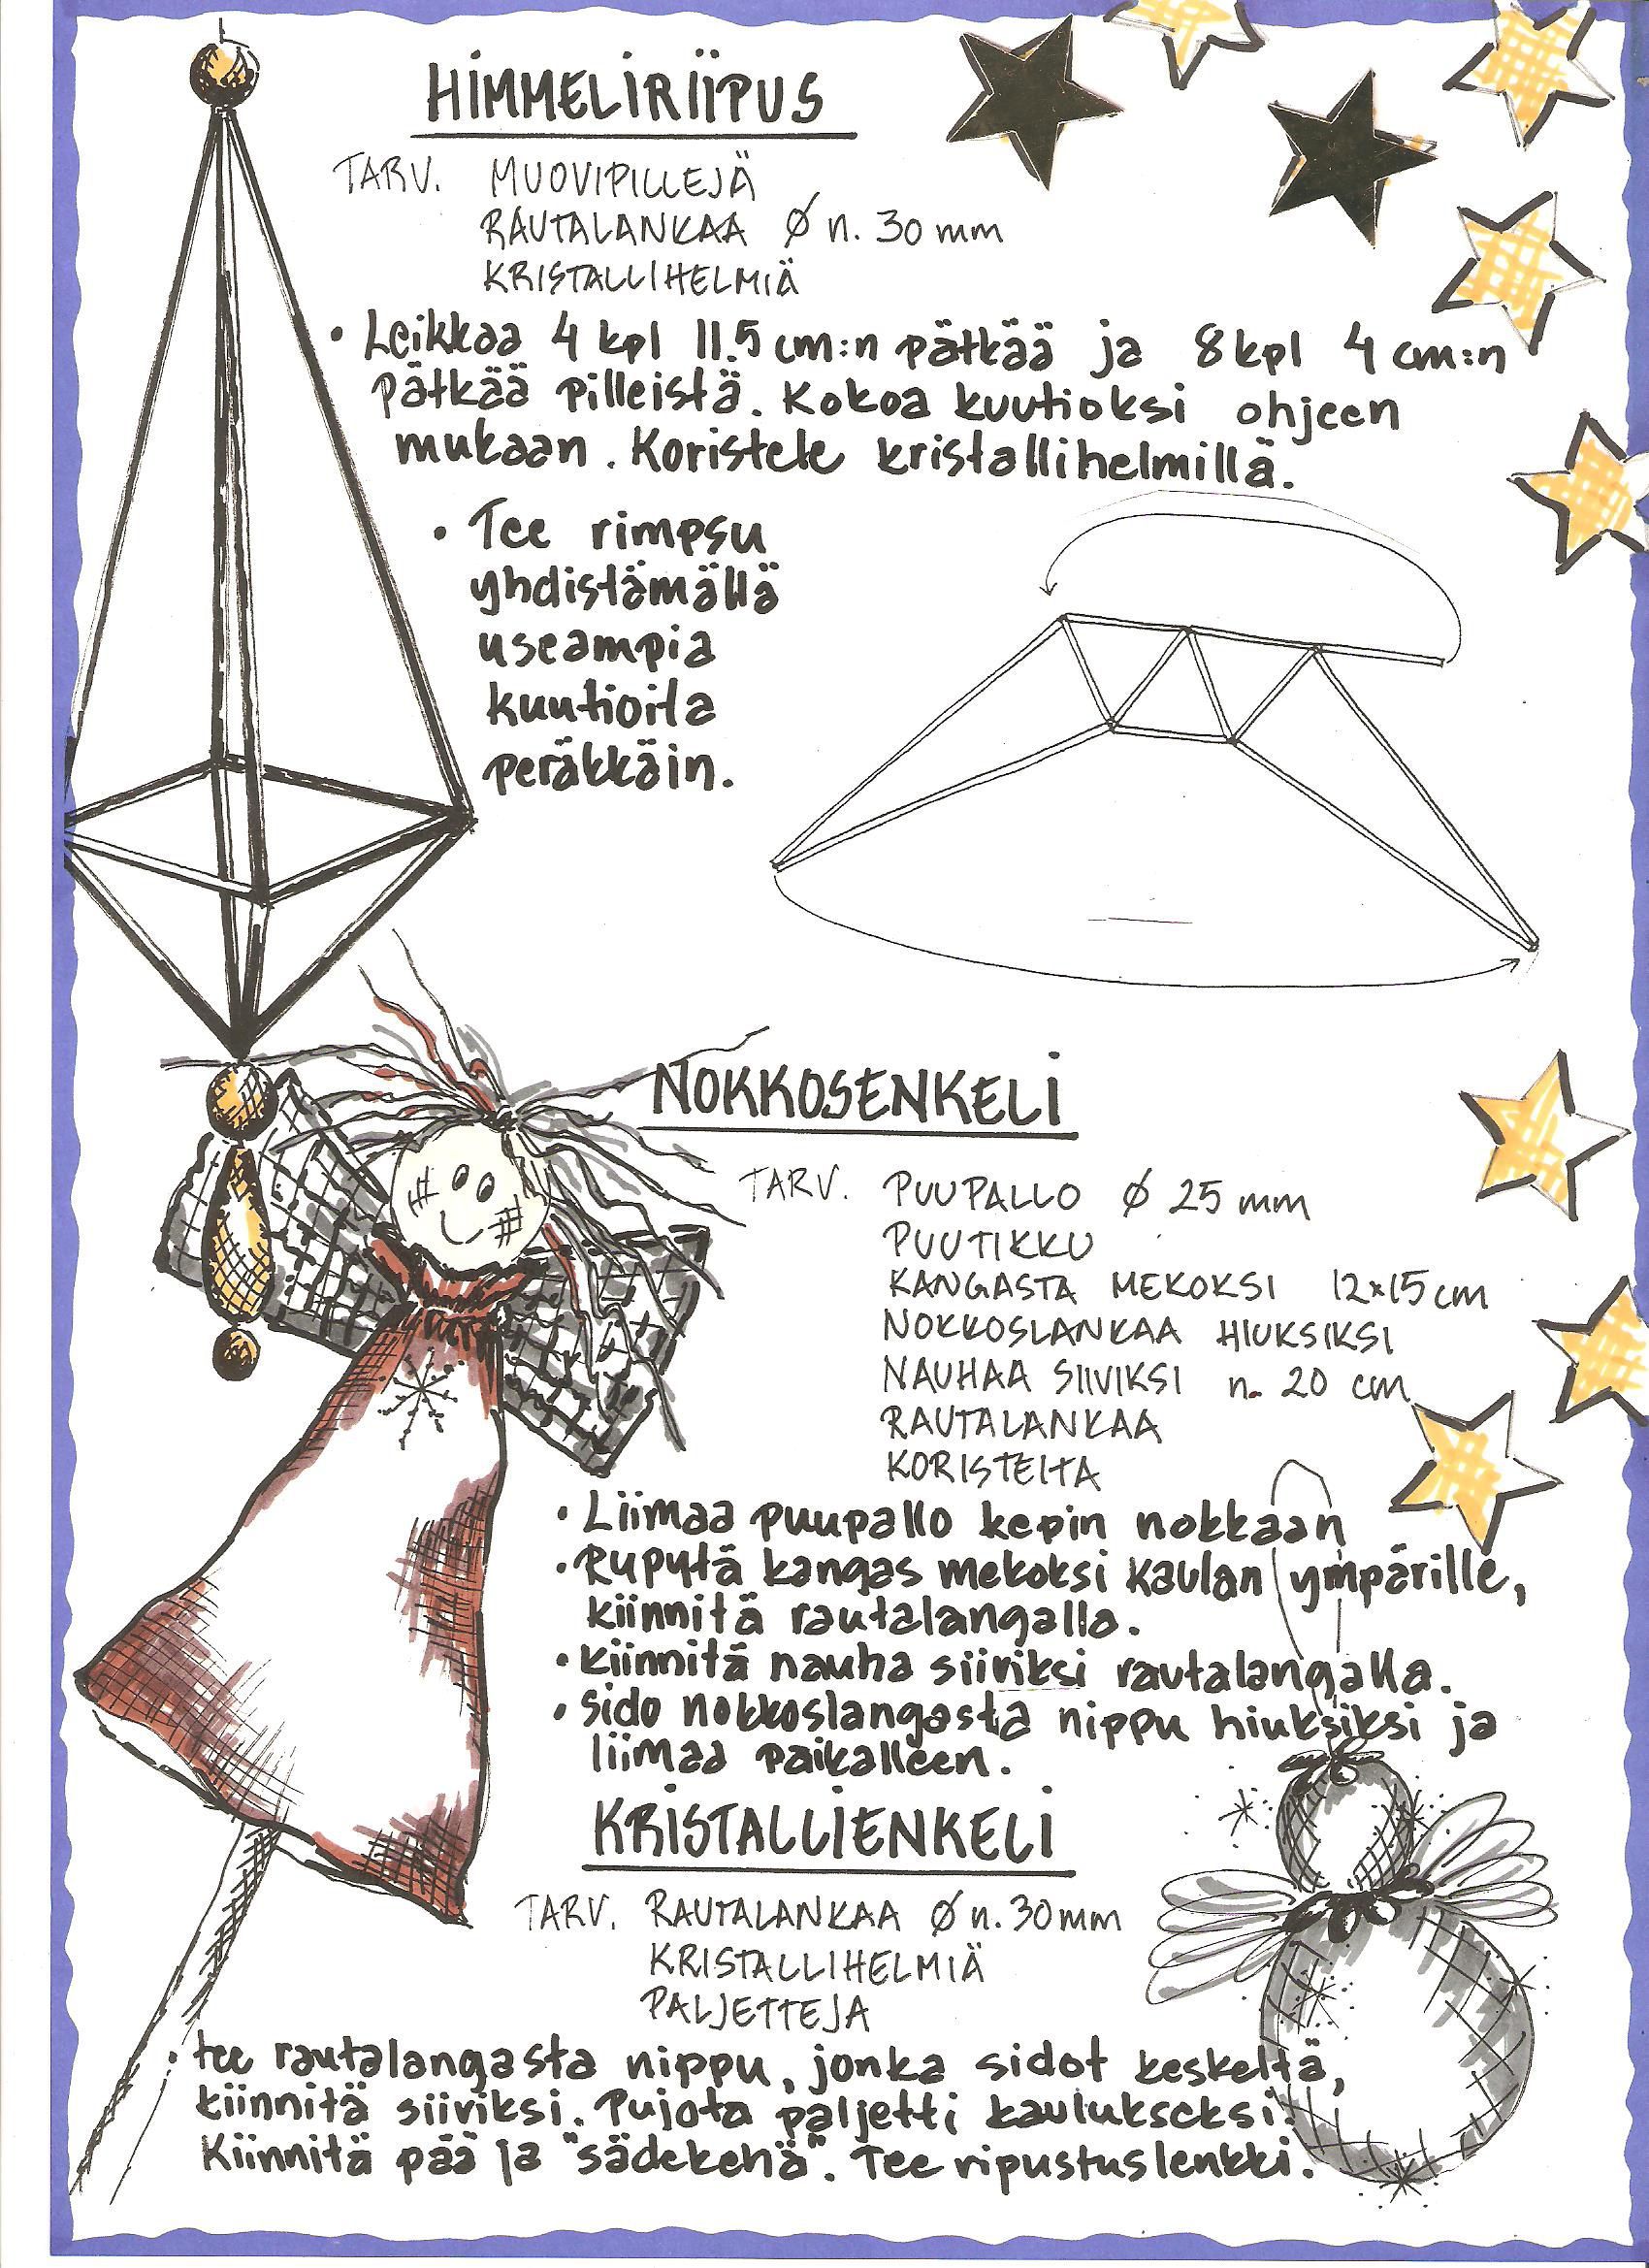 HIMMELIRIIPUS
TARV. MUOVIPILLEJÄ
RAUTALANKAA Ø n. 30 mm
KRISTALLIHELMIÄ
• Leikkaa 4 kpl 11.5 cm:n pätkää ja 8 kpl 4 cm:n
pätkää pilleistä. Kokoa kuutioksi ohjeen
mukaan. Koristele kristallihelmillä.
• Tee rimpsu
yhdistämällä
useampia
kuutioita
peräkkäin.
NOKKOSENKELI
TARV. PUUPALLO Ø 25 mm
PUUTIKKU
KANGASTA MEKOKSI 12x15 cm
NOKKOSLANKAA HIUKSIKSI
NAUHAA SIIVIKSI n. 20 cm
RAUTALANKAA
KORISTEITA
• Liimaa puupallo kepin nokkaan
• Rypytä kangas mekoksi kaulan ympärille,
kiinnitä rautalangalla.
• kiinnitä nauha siiviksi rautalangalla.
• Sido nokkoslangasta nippu hiuksiksi ja
liimaa paikalleen.
KRISTALLIENKELI
TARV. RAUTALANKAA Ø n. 30 mm
KRISTALLIHELMIÄ
PALJETTEJA
• tee rautalangasta nippu, jonka sidot keskeltä,
kiinnitä siiviksi. Pujota paljetti kaulukseksi.
Kiinnitä pää ja "sädekehä". Tee ripustuslenkki.